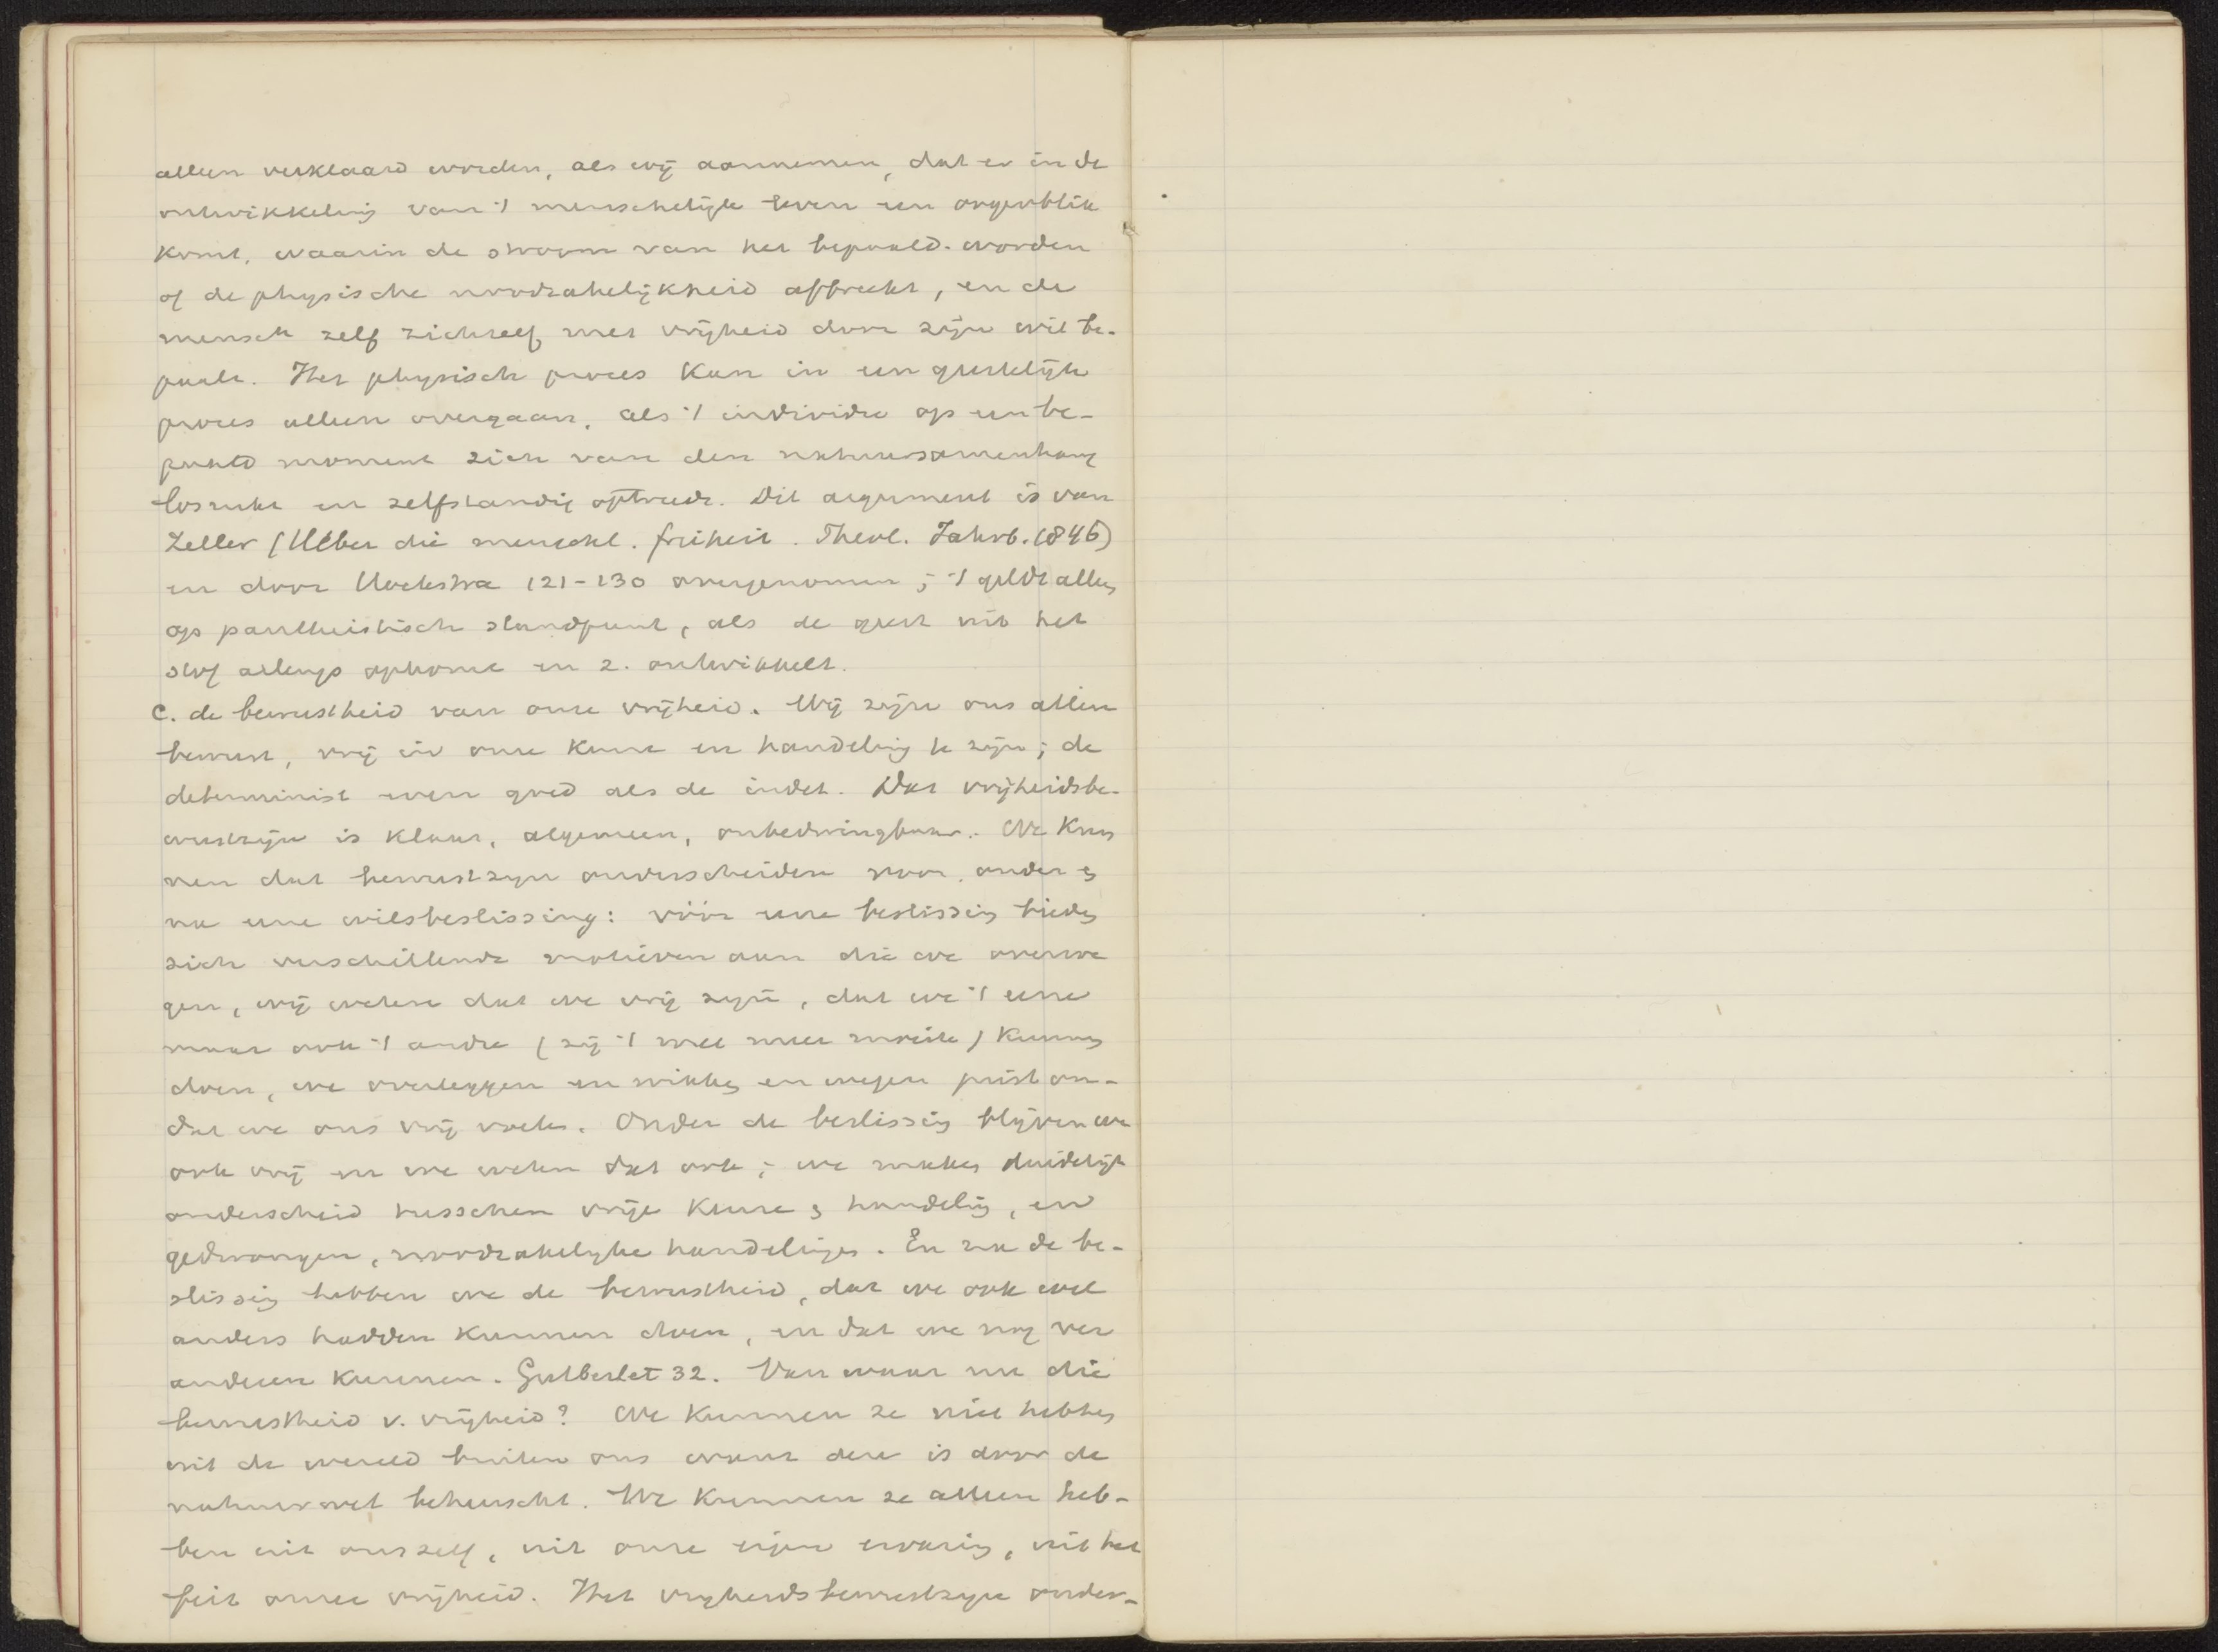 alleen verklaard worden, als wij aannemen, dat er in de
ontwikkeling van 't menschelijk leven een oogenblik
komt, waarin de stroom van het bepaald-worden
of de physische noodzakelijkheid afbreekt, en de
mensch zelf zichzelf met vrijheid door zijn wil be-
paalt. Het physisch proces kan in een geestelijk
proces alleen overgaan, als 't individu op een be-
paald moment zich van den natuursamenhang
losrukt en zelfstandig optreedt. Dit argument is van
Zeller (Ueber die menschl. freiheit. Theol. Jahrb. 1846)
en door Hoekstra 121-130 overgenomen; 't geldt alleen
op pantheistisch standpunt, als de geest uit het
stof allengs opkomt en z. ontwikkelt.
c. de bewustheid van onze vrijheid. Wij zijn ons allen
bewust, vrij in onze keuze en handeling te zijn; de
determinist even goed als de indet. Dat vrijheidsbe-
wustzijn is klaar, algemeen, onbedwingbaar. We kun
nen dat bewustzijn onderscheiden voor, onder &
na eene wilsbeslissing: vóór eene beslissing bieden
zich verschillende motieven aan die we overwe
gen, wij weten dat we vrij zijn, dat we 't eene
maar ook 't andre (zij 't met meer moeite) kunnen
doen, we overleggen en wikken en wegen juist om-
dat we ons vrij voelen. Onder de beslissing blijven we
ook vrij en we weten dat ook; we maken duidelijk
onderscheid tusschen vrije keuze & handeling, en
gedwongen, noodzakelijke handelingen. En na de be-
slissing hebben we de bewustheid, dat we ook wel
anders hadden kunnen doen, en dat we nog ver
anderen kunnen. Gutberlet 32. Van waar nu die
bewustheid v. vrijheid? We kunnen ze niet hebben
uit de wereld buiten ons want deze is door de
natuurwet beheerscht. We kunnen ze alleen heb-
ben uit onszelf, uit onze eigen ervaring, uit het
feit onzer vrijheid. Het vrijheidsbewustzijn onder-